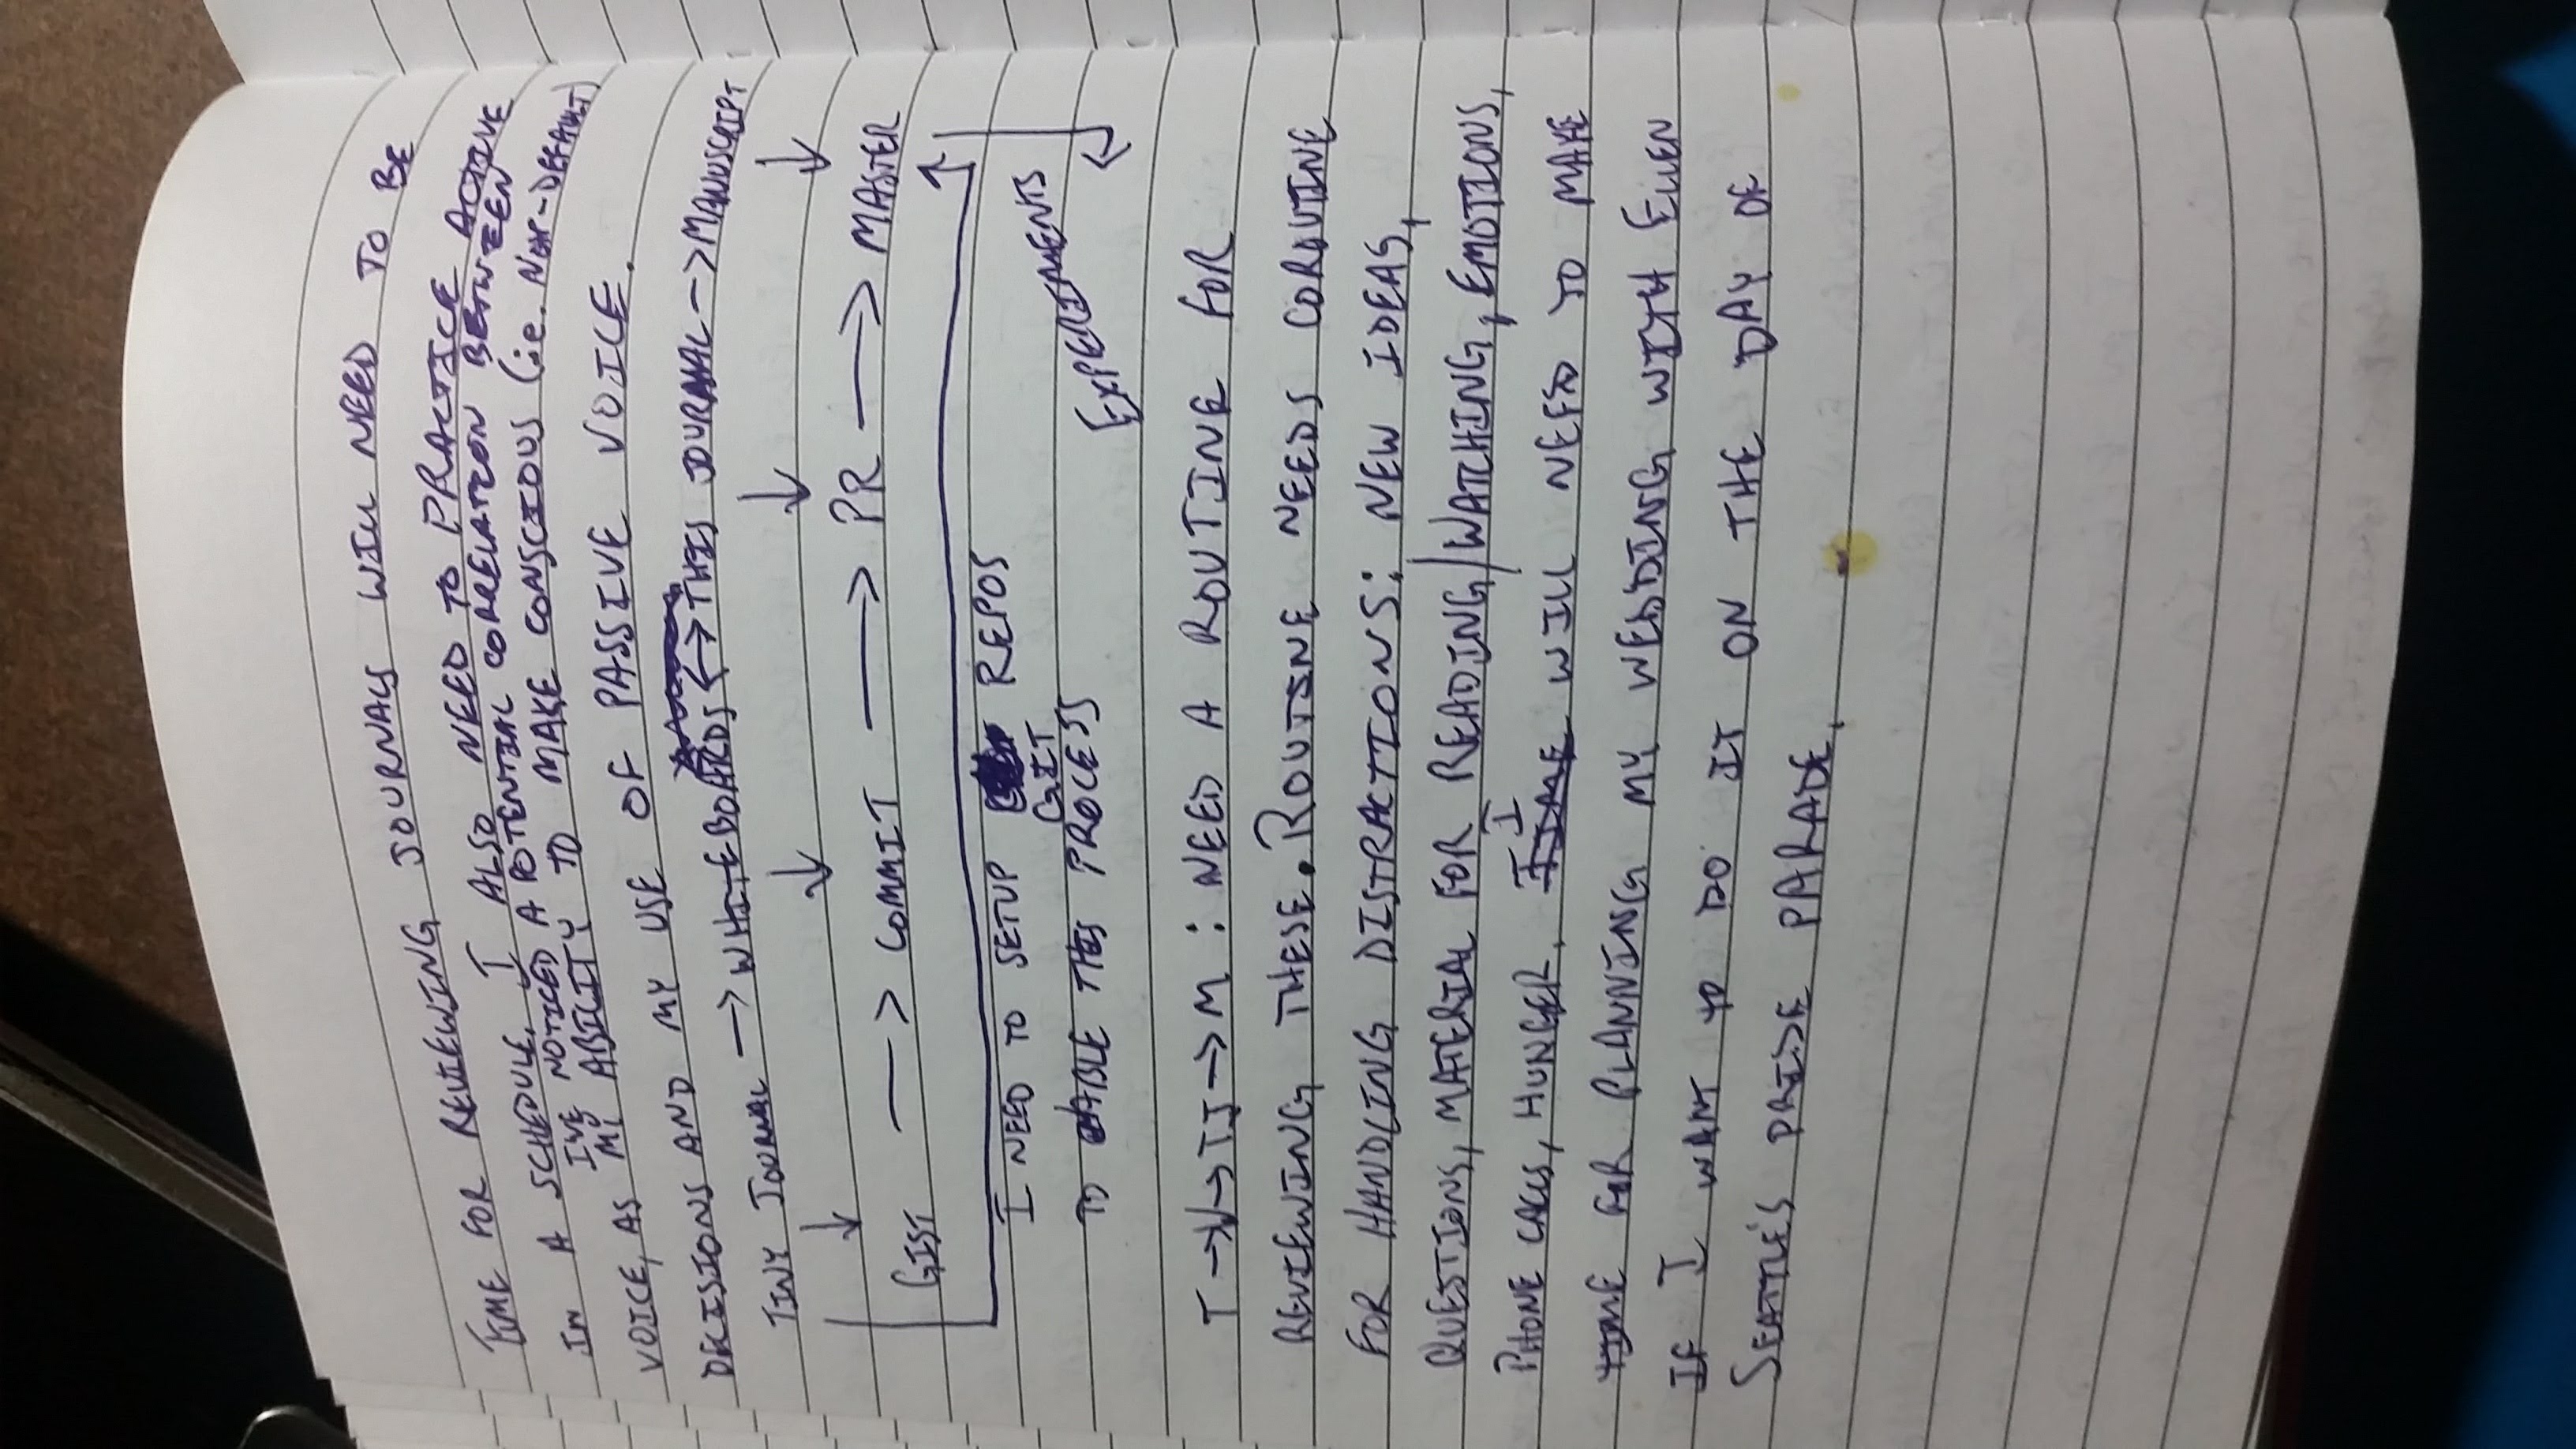 TIME FOR REVIEWING JOURNALS WILL NEED TO BE
IN A SCHEDULE. I ALSO NEED TO PRACTICE ACTIVE
I'VE NOTICED A POTENTIAL CORRELATION BETWEEN
VOICE, AS MY ABILITY TO MAKE CONSCIOUS (i.e. NON-DEFAULT)
DECISIONS AND MY USE OF PASSIVE VOICE.
TINY JOURNAL → WHITEBOARDS ↔ THIS JOURNAL → MANUSCRIPT
GIST → COMMIT → PR → MASTER
I NEED TO SETUP GIT REPOS
TO ABLE THIS PROCESS
EXPERIMENTS
T→W→TJ→M: NEED A ROUTINE FOR
REVIEWING THESE. ROUTINE NEEDS COROUTINE
FOR HANDLING DISTRACTIONS: NEW IDEAS,
QUESTIONS, MATERIAL FOR READING/WATCHING, EMOTIONS,
PHONE CALLS, HUNGER. I WILL NEED TO MAKE
TIME FOR PLANNING MY WEDDING WITH ELLEN
IF I WANT TO DO IT ON THE DAY OF
SEATTLE'S PRIDE PARADE.